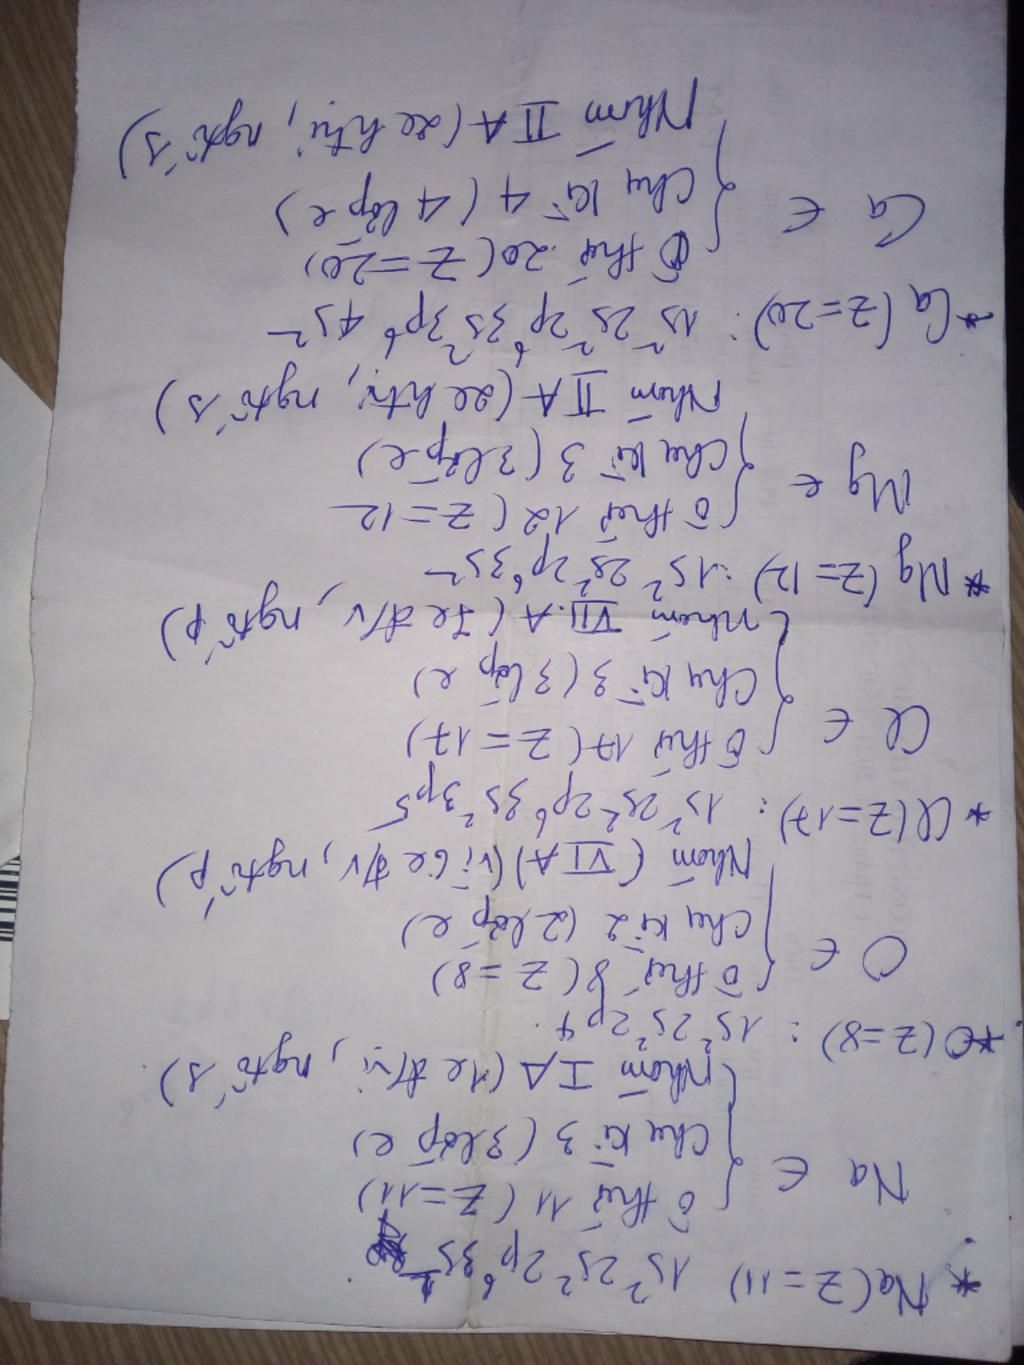 * Na (Z=11) 1s² 2s² 2p⁶ 3s¹
ô thứ 11 (Z=11)
Na ∈ { Chu kì 3 (3 lớp e)
Nhóm IA (1e h/trị, ngtố s)
* O (Z=8) : 1s² 2s² 2p⁴.
ô thứ 8 (Z=8)
O ∈ { Chu kì 2 (2 lớp e)
Nhóm (VIA) (vì 6e đ/v, ngtố p)
* Cl (Z=17) : 1s² 2s² 2p⁶ 3s² 3p⁵
ô thứ 17 (Z=17)
Cl ∈ { Chu kì 3 (3 lớp e)
Nhóm VII.A (7e đ/v, ngtố p)
* Mg (Z=12) : 1s² 2s² 2p⁶ 3s²
ô thứ 12 (Z=12
Mg ∈ { Chu kì 3 (3 lớp e)
Nhóm IIA (2e htrị, ngtố s)
* Ca (Z=20) : 1s² 2s² 2p⁶ 3s² 3p⁶ 4s²
Ô thứ 20 (Z=20)
Ca ∈ { Chu kì 4 (4 lớp e)
Nhóm IIA (2e htrị, ngtố s)